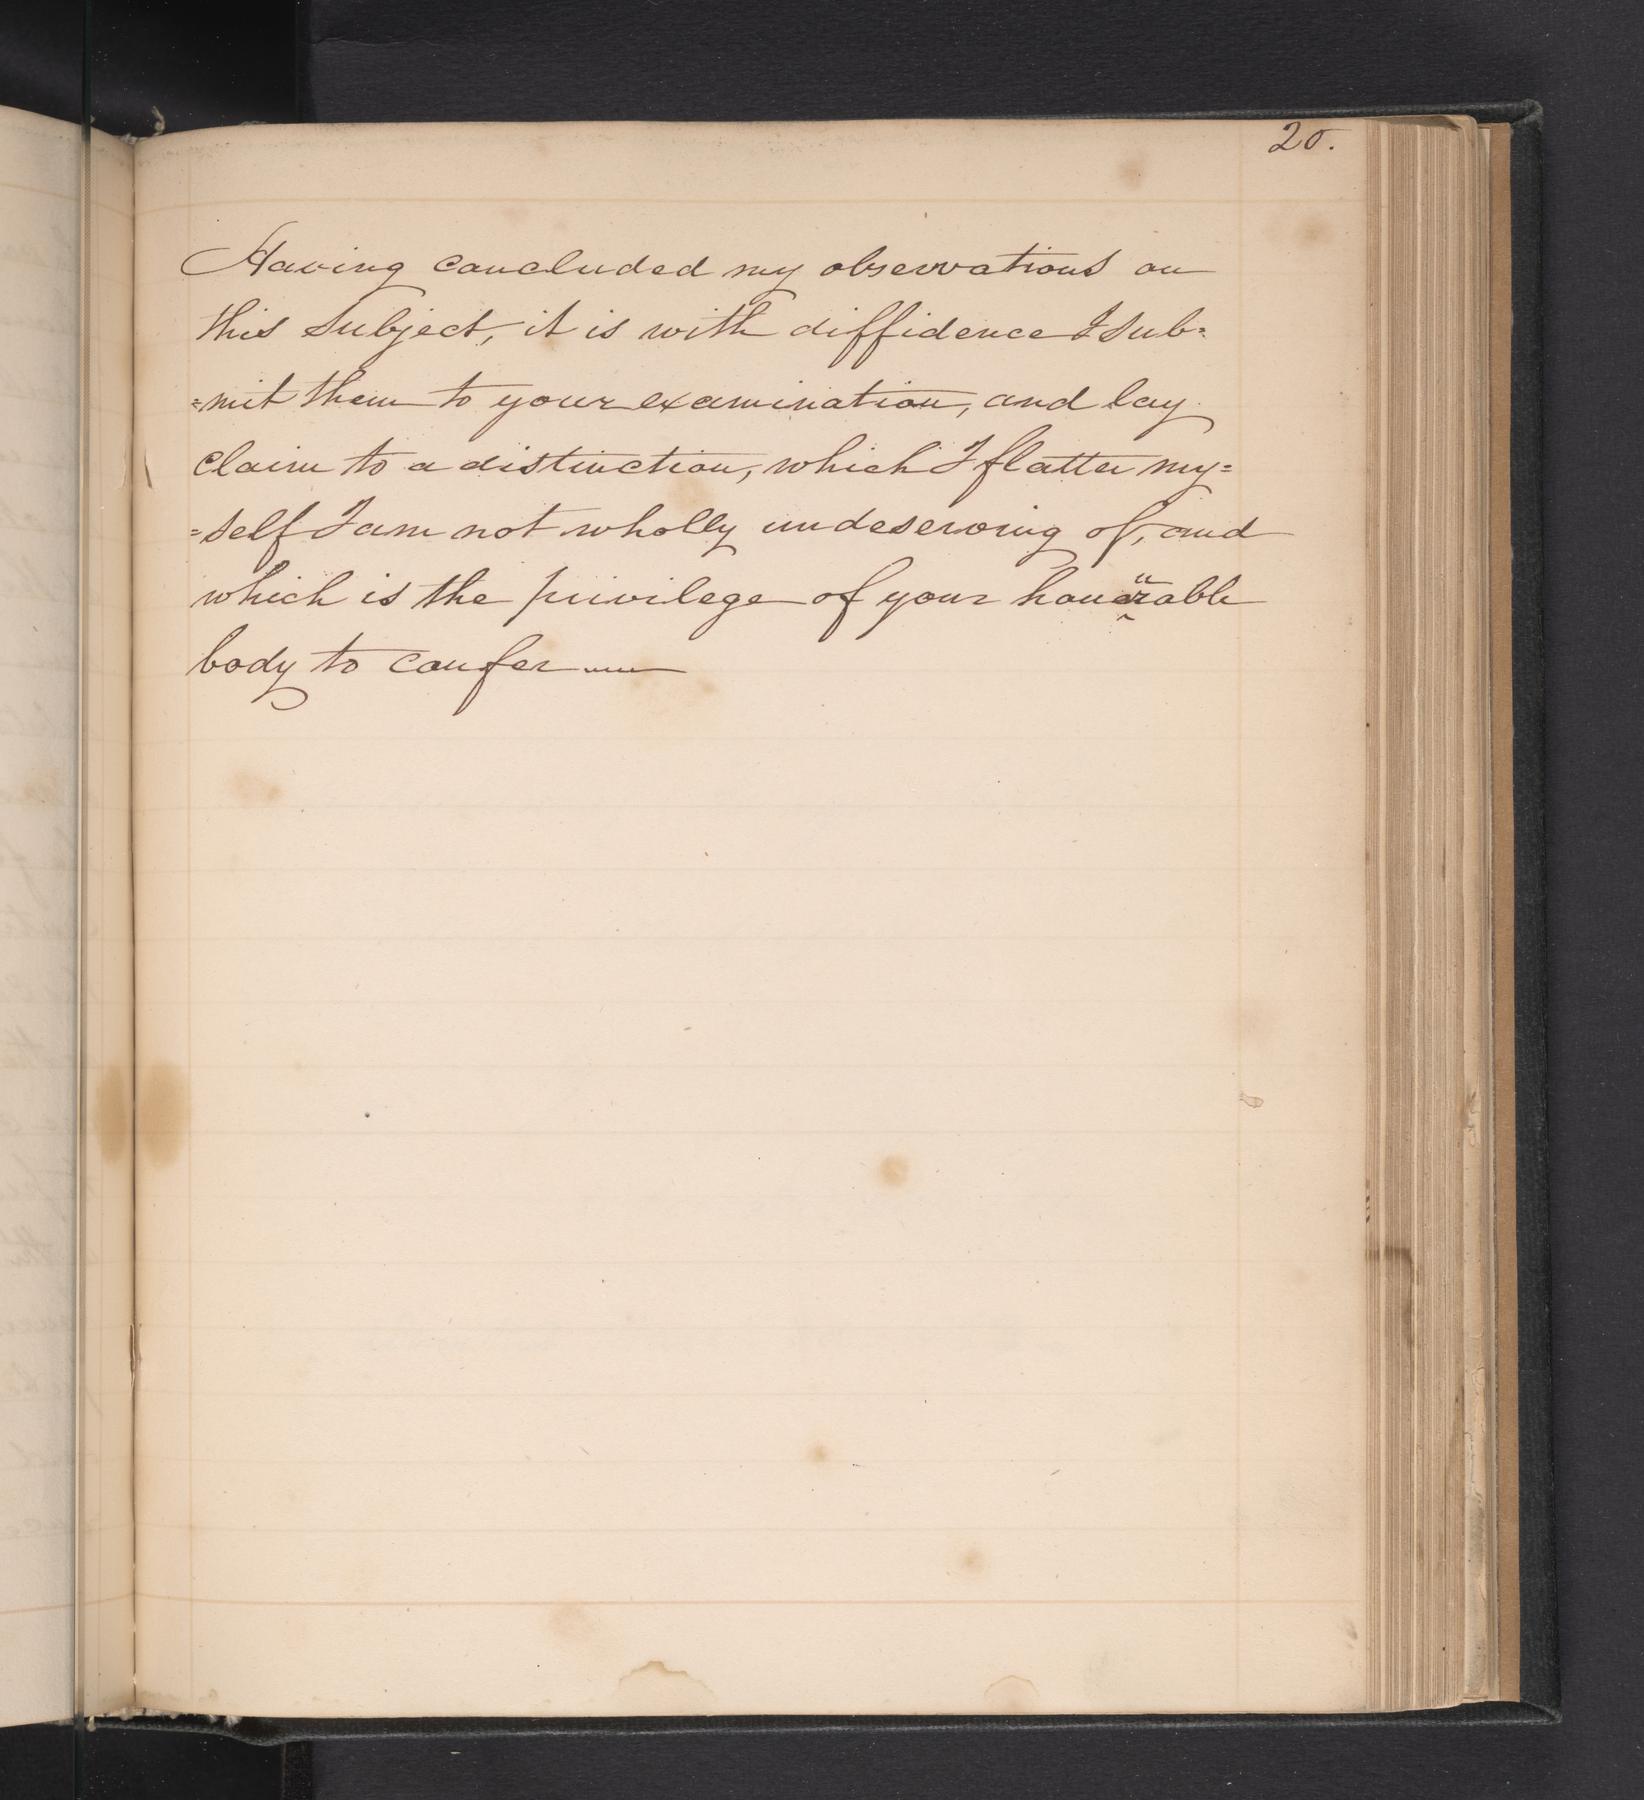 20.
Having concluded my observations on
this Subject, it is with diffidence I Sub=
=mit them to your examination, and lay
claim to a distinction, which I flatter my=
=self I am not wholly undeserving of, and
which is the privilege of your honourable
body to confer